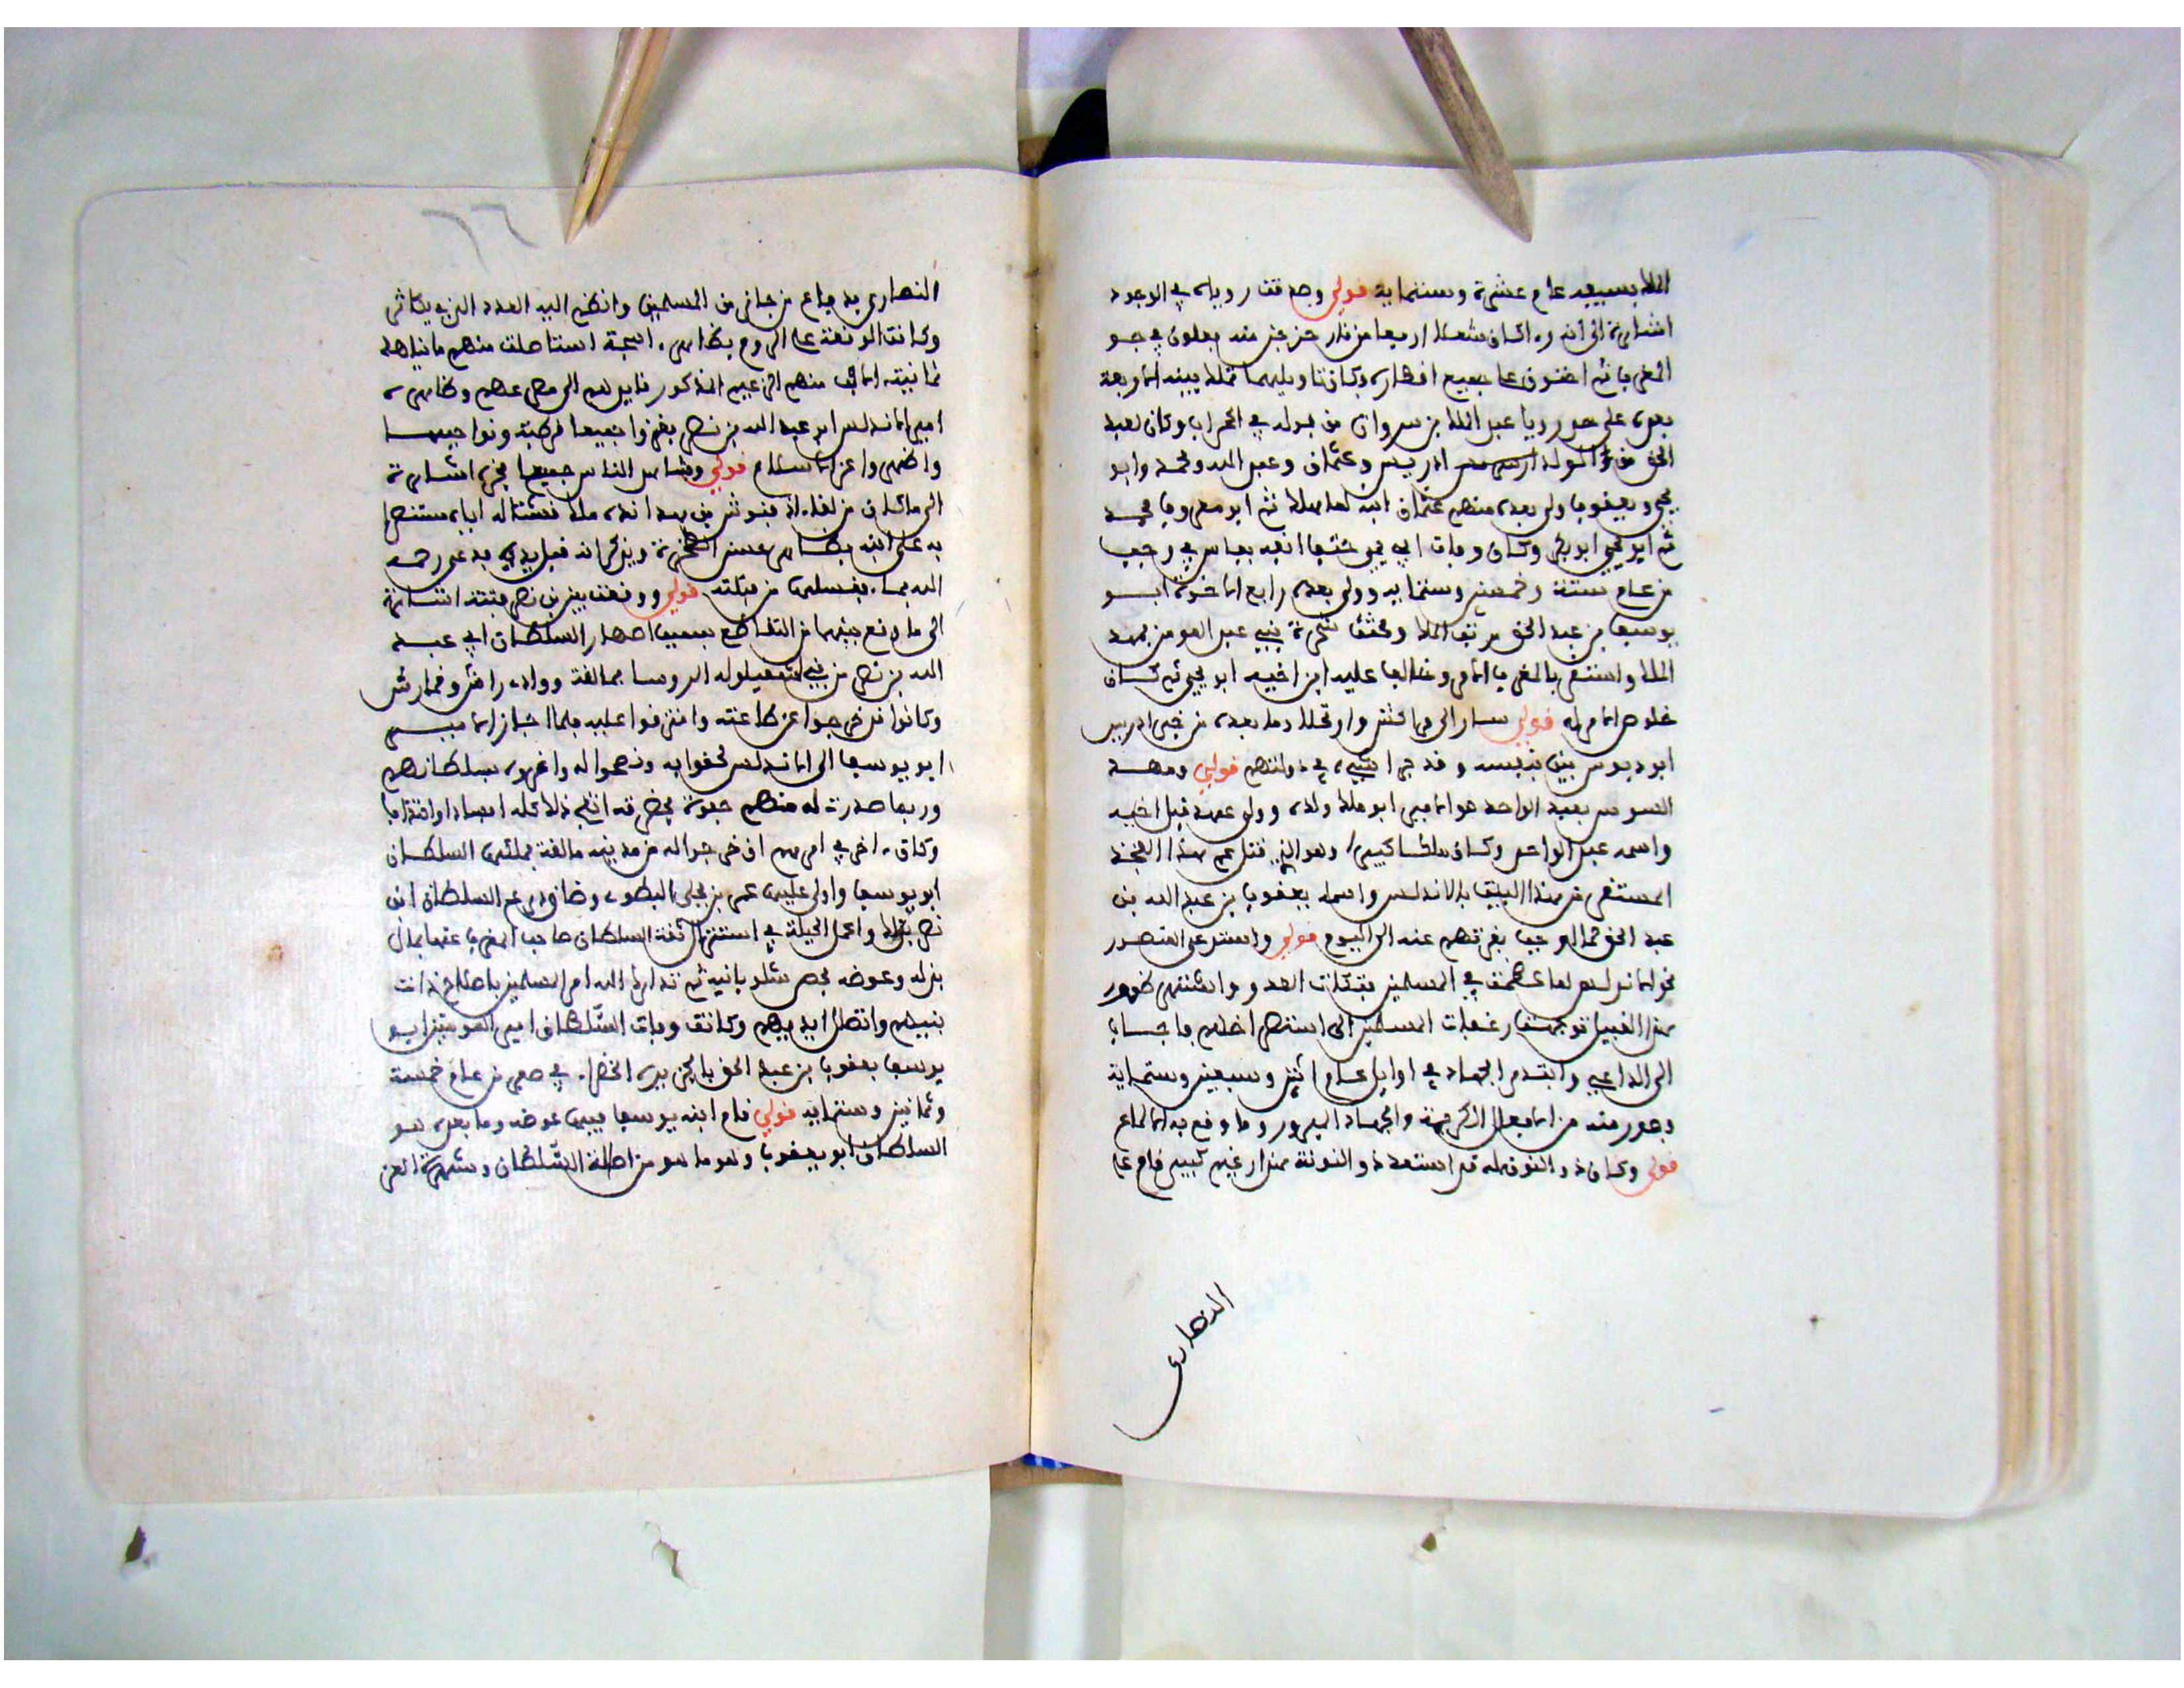 الملك بسببه عام عشرة وستماية قولي وحققت روياه في الوجود
اشارة الى انه راى كان شعلا اربعا من نار خرجن منه بعلون في جو
المغرب ثم احتوت على جميع اقطاره وكان تاويلها تملك بنيه الاربعة
بعده على حد رويا عبد الملك بن مروان من بوله في المحراب وكان لعبد
الحق من الولد ادريس وعثمان وعبد الله ومحمد وابو
يحيى ويعقوب ولي بعده منهم عثمان ابنه ثم ابو معروف محمد
ثم ابو يحيى ابو بكر وكان وفات ابي يحيى حتف انفه بفاس في رجب
من عام ستة وخمسين وستماية وولي بعده رابع الاخوة ابو
يوسف بن عبد الحق مرتب الملك ومجتث شجرة بني عبد المومن فمهد
الملك واستقر بالمغرب الامر وخالف عليه ابن اخيه ابو يحيى ثم كان
خلوص الامر له قولي سار الى مراكش وارتحل وما بعده من خبر ادريس
ابو دبوس بين بنفسه وقد جرا شيء في دولتهم قولي ومهد
السوس بعبد الواحد هو الامير ابو ملك ولده وولي عهده قبل اخيه
واسمه عبد الواحد وكان ملكا كبيرا وهو الذي قتل عم هذا الفخذ
المستقر من هذا البيت بالاندلس واسمه يعقوب بن عبد الله بن
عبد الحق الموجب بفرقتهم عنه الى اليوم قولي واستدعى القصدر
نحو الاندلس لما عظمت في المسلمين نكات العدو واشتهر ظهور
هذا القبيل توجهت رغبات المسلمين الى استنصراخهم فاجاب
الى الداعي وابتدر الجهاد في اوايل عام اثنين وسبعين وستماية
وصدر منه من الافعال الكريمة والجهاد المبرور وما وقع به الالماع
قولي وكان ذو النون له قد استعد ذو النونة هذا زعيم كبير قام على
النصارى
النصارى به ضاع من جانب من المسلمين وانظم اليه العدد الذي يكاثر
وكانت الوقعة على الروم بظاهر استجة استاصلت منهم ما يناهز
ثمانية الاف منهم الزعيم المذكور فانزلهم الى مصرعهم وظاهره
امير الاندلس ابو عبد الله بن نصر بغزوا جميعا قرطبة ونواحيها
واظهروا عز الاسلام قولي وشاهد الناس جميعا فخره اشارة
الى ما كان من لقاء الفنش بن هراندة ملك قشتالة اياه مستنصرا
به على ابنه بظاهر حصن الصخرة ويذكر انه قبل يديه به عز وجل
الله بما يغسلها من قبلته قولي ووقعت بين بني نصر فتنة اشارة
الى ما وقع بينهما من التقاطع بسبب اصهار السلطان ابي عبد
الله بن نصر من بني اشقيلوله الروسا بمالقة ووادي اش وقمارش
وكانوا قد خرجوا عن طاعته وافترقوا عليه فلما اجاز الامير
ابو يوسف الى الاندلس لحقوا به ونصحوا له واغروه بسلطانهم
وربما صدرت له منهم جفوة بمحضرته انتج ذلك كله افسادا وافتراقا
وكان اخر في امرهم ان خرجوا له من مدينة مالقة فملكها السلطان
ابو يوسف وولى عليها عمر بن يحلى البطوي وضايق عم السلطان ابن
نصر بذلك واعمل الحيلة في استنزال ثقة السلطان صاحب المغرب عنها بمال
بذله وعوضه بحصن شلوبانية ثم تدارك الله امر المسلمين باصلاح ذات
بينهم واتصال ايديهم وكانت وفات السلطان امير المومنين ابو
يوسف يعقوب بن عبد الحق بالجزيرة الخضرا في صفر من عام خمسة
وثمانين وستماية قولي قام ابنه يوسف فيها عوضه وما بعده هو
السلطان ابو يعقوب وهو ما هو من اصالة السلطان وشهرة العز